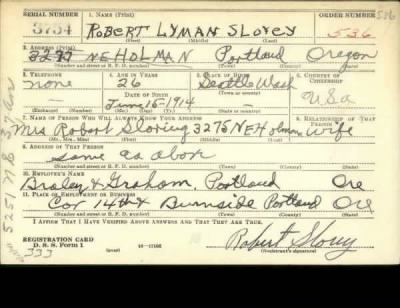 SERIAL NUMBER 1. NAME (Print) ORDER NUMBER
3734 ROBERT LYMAN SLOVEY 536
(First) (Middle) (Last)
2. ADDRESS (Print)
NE HOLMAN Portland Oregon
(Number and street or R. F. D. number) (Town) (County) (State)
3. TELEPHONE 4. AGE IN YEARS 5. PLACE OF BIRTH 6. COUNTRY OF CITIZENSHIP
none 26 Seattle Wash USA
DATE OF BIRTH
June 15-1914
(Mo.) (Day) (Yr.)
7. NAME OF PERSON WHO WILL ALWAYS KNOW YOUR ADDRESS 8. RELATIONSHIP OF THAT PERSON
Mrs Robert 3275 NE Holman wife
(Mr., Mrs., Miss) (First) (Middle) (Last)
9. ADDRESS OF THAT PERSON
same as above
(Number and street or R. F. D. number) (Town) (County) (State)
10. EMPLOYER'S NAME
Braley & Graham, Portland Ore
11. PLACE OF EMPLOYMENT OR BUSINESS
Cor 14th & Burnside Portland Ore
(Number and street or R. F. D. number) (Town) (County) (State)
I AFFIRM THAT I HAVE VERIFIED ABOVE ANSWERS AND THAT THEY ARE TRUE.
REGISTRATION CARD
D. S. S. Form 1 (over) 16—17105
Robert Slovey
(Registrant's signature)
333